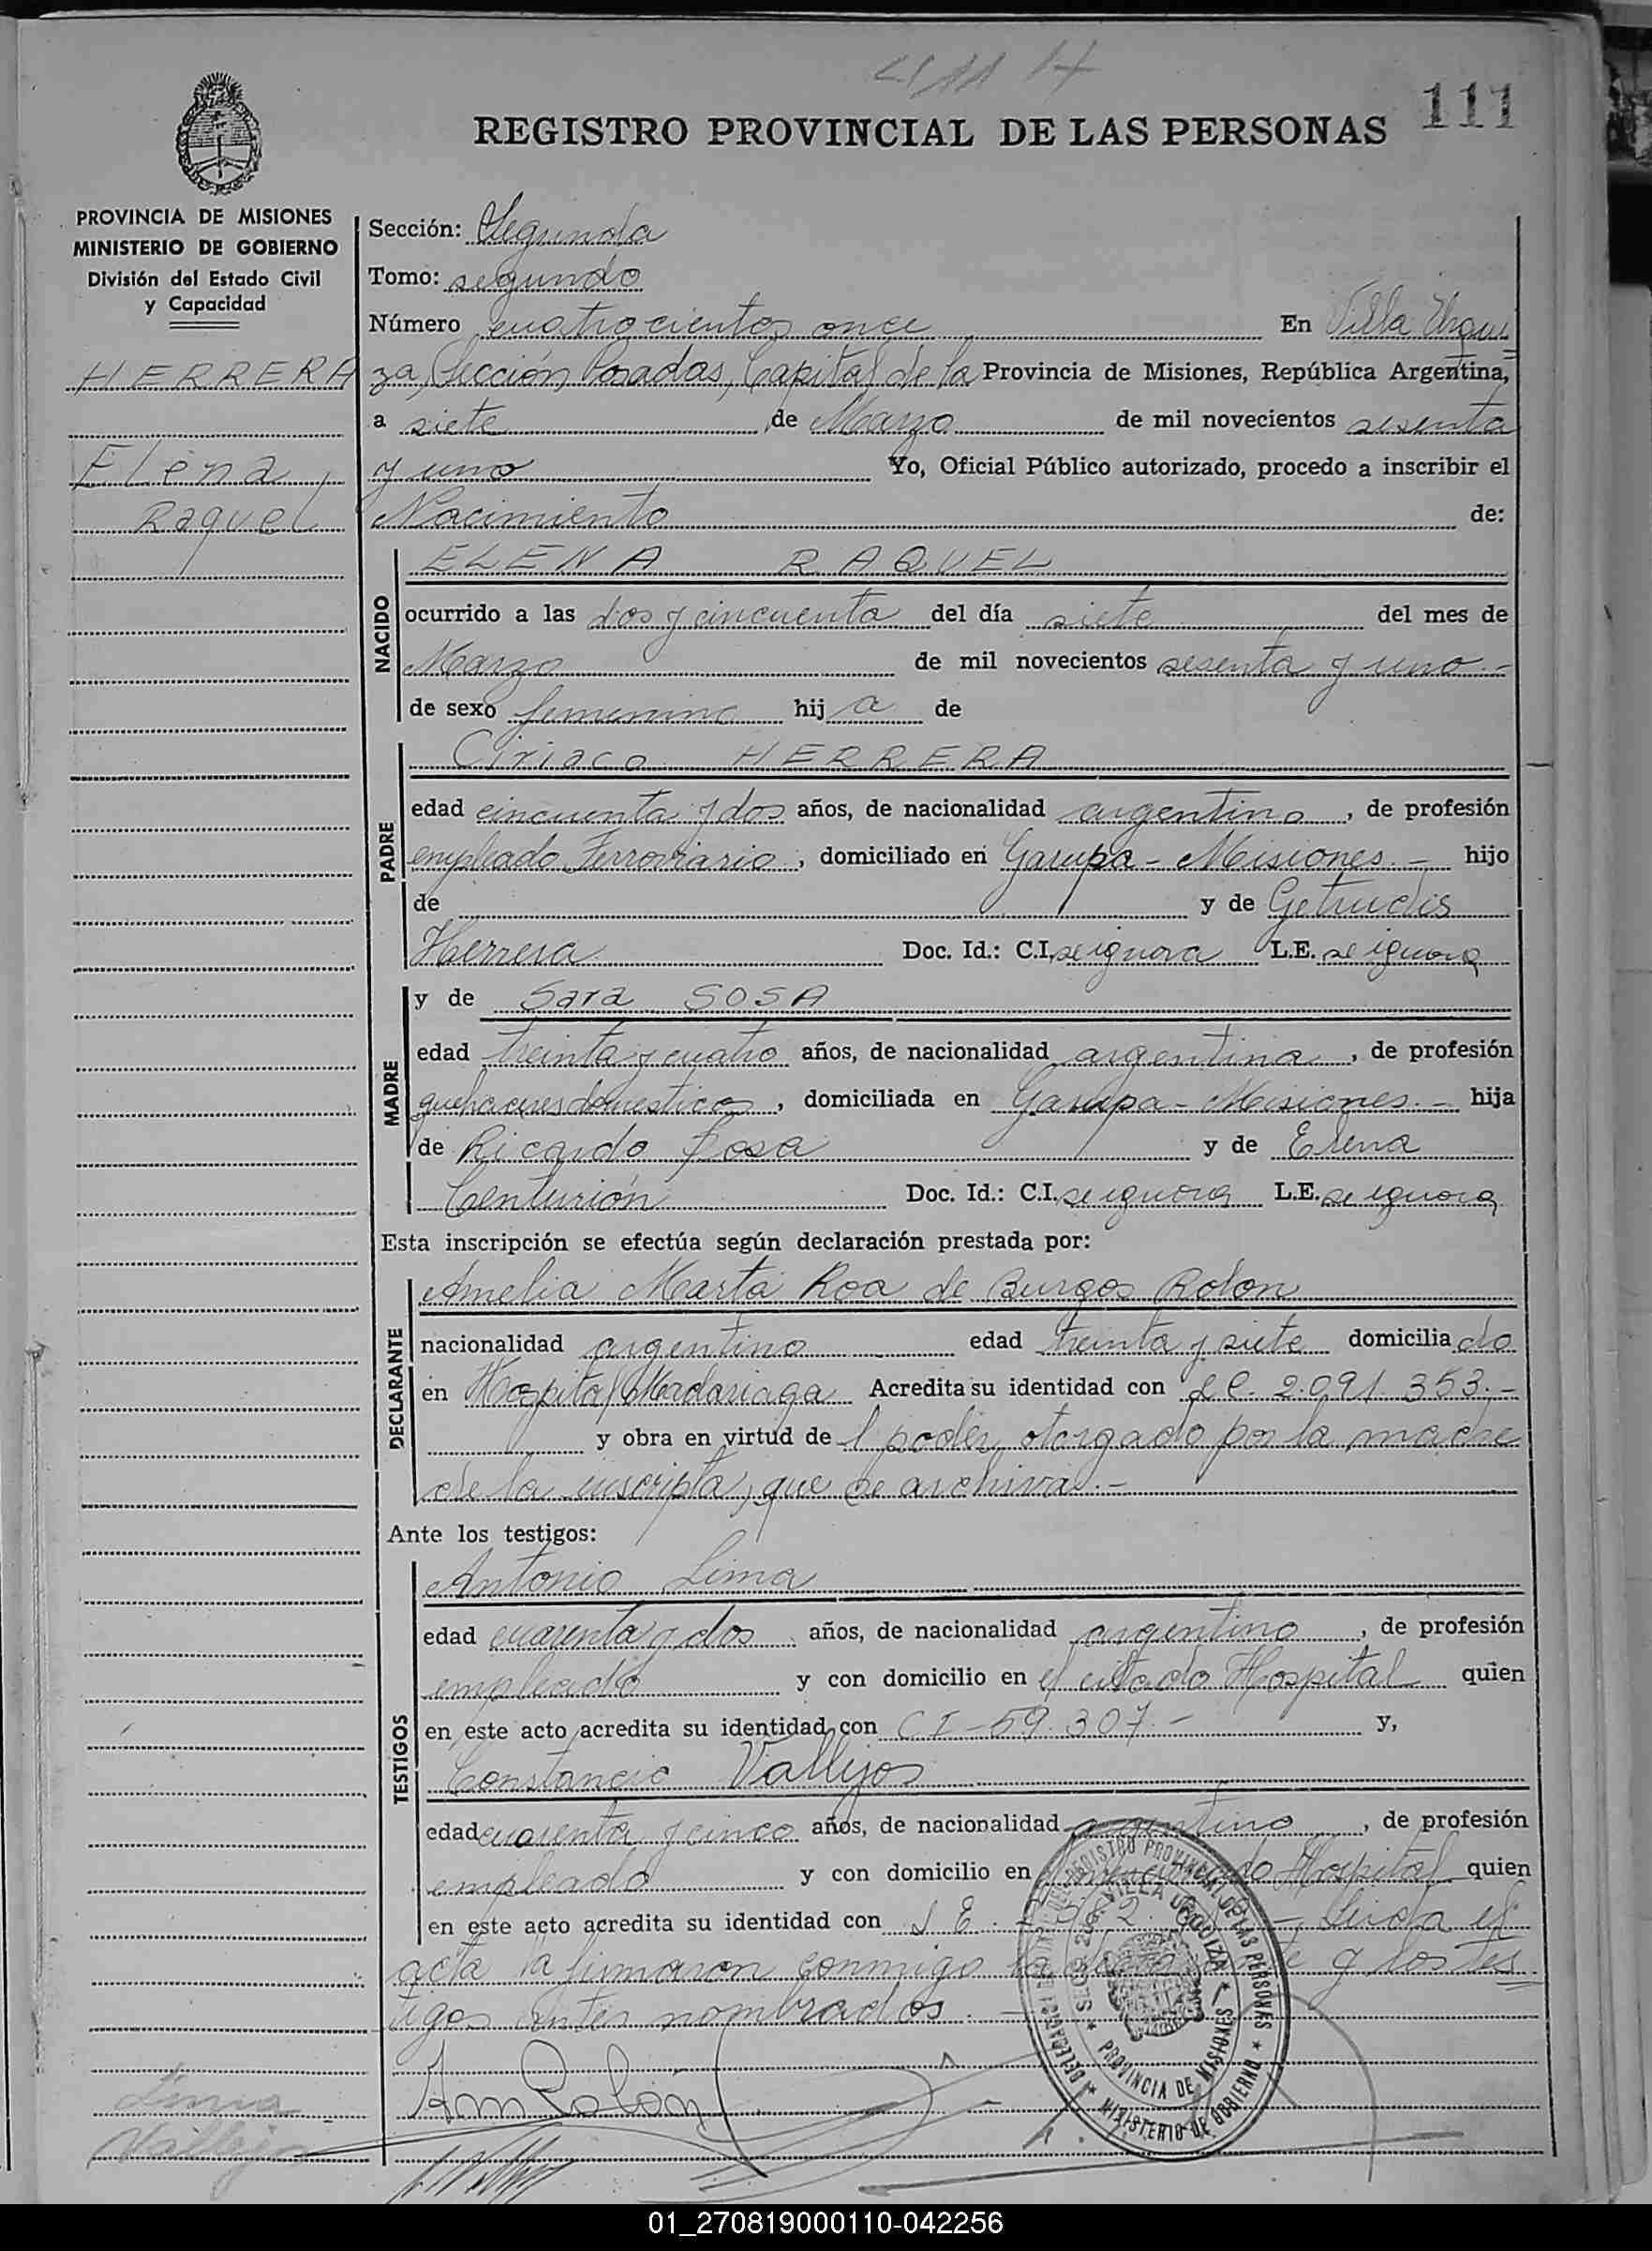 411 H
111
REGISTRO PROVINCIAL DE LAS PERSONAS
PROVINCIA DE MISIONES
MINISTERIO DE GOBIERNO
División del Estado Civil
y Capacidad
HERRERA
Elena
Raquel
Sección: Segunda
Tomo: segundo
Número cuatrocientos once En Villa Urqui
za, Sección Posadas, Capital de la Provincia de Misiones, República Argentina,
a siete de Marzo de mil novecientos sesenta
y uno Yo, Oficial Público autorizado, procedo a inscribir el
Nacimiento de:
NACIDO
ELENA RAQUEL
ocurrido a las dos y cincuenta del día siete del mes de
Marzo de mil novecientos sesenta y uno.-
de sexo femenino hij a de
PADRE
Ciriaco HERRERA
edad cincuenta y dos años, de nacionalidad argentino, de profesión
empleado Ferroviario, domiciliado en Garupa - Misiones.- hijo
de y de Getrudis
Herrera Doc. Id.: C.I. se ignora L.E. se ignora
MADRE
y de Sara SOSA
edad treinta y cuatro años, de nacionalidad argentina, de profesión
quehaceres domesticos, domiciliada en Garupa - Misiones.- hija
de Ricardo Sosa y de Elena
Centurión Doc. Id.: C.I. se ignora L.E. se ignora
Esta inscripción se efectúa según declaración prestada por:
DECLARANTE
Amelia Marta Roa de Burgos Rolon
nacionalidad argentino edad treinta y siete domicilia do
en Hospital Madariaga Acredita su identidad con LC. 2.091.353.-
y obra en virtud de l poder otorgado por la madre
de la inscripta, que se archiva.-
Ante los testigos:
TESTIGOS
Antonio Lima
edad cuarenta y dos años, de nacionalidad argentino, de profesión
empleado y con domicilio en el citado Hospital quien
en este acto acredita su identidad con CI-59.307.- y,
Constancio Vallejos
edad cuarenta y cinco años, de nacionalidad argentino, de profesión
empleado y con domicilio en Hospital quien
en este acto acredita su identidad con L E. - Leida el
acta la firmaron conmigo la y los tes
tigos antes nombrados.-
Am Rolón
Lima
Vallejo
DELEGACION DEL REGISTRO PROVINCIAL DE LAS PERSONAS * MINISTERIO DE GOBIERNO *
SECC. 2da. VILLA URQUIZA * PROVINCIA DE MISIONES *
01_270819000110-042256